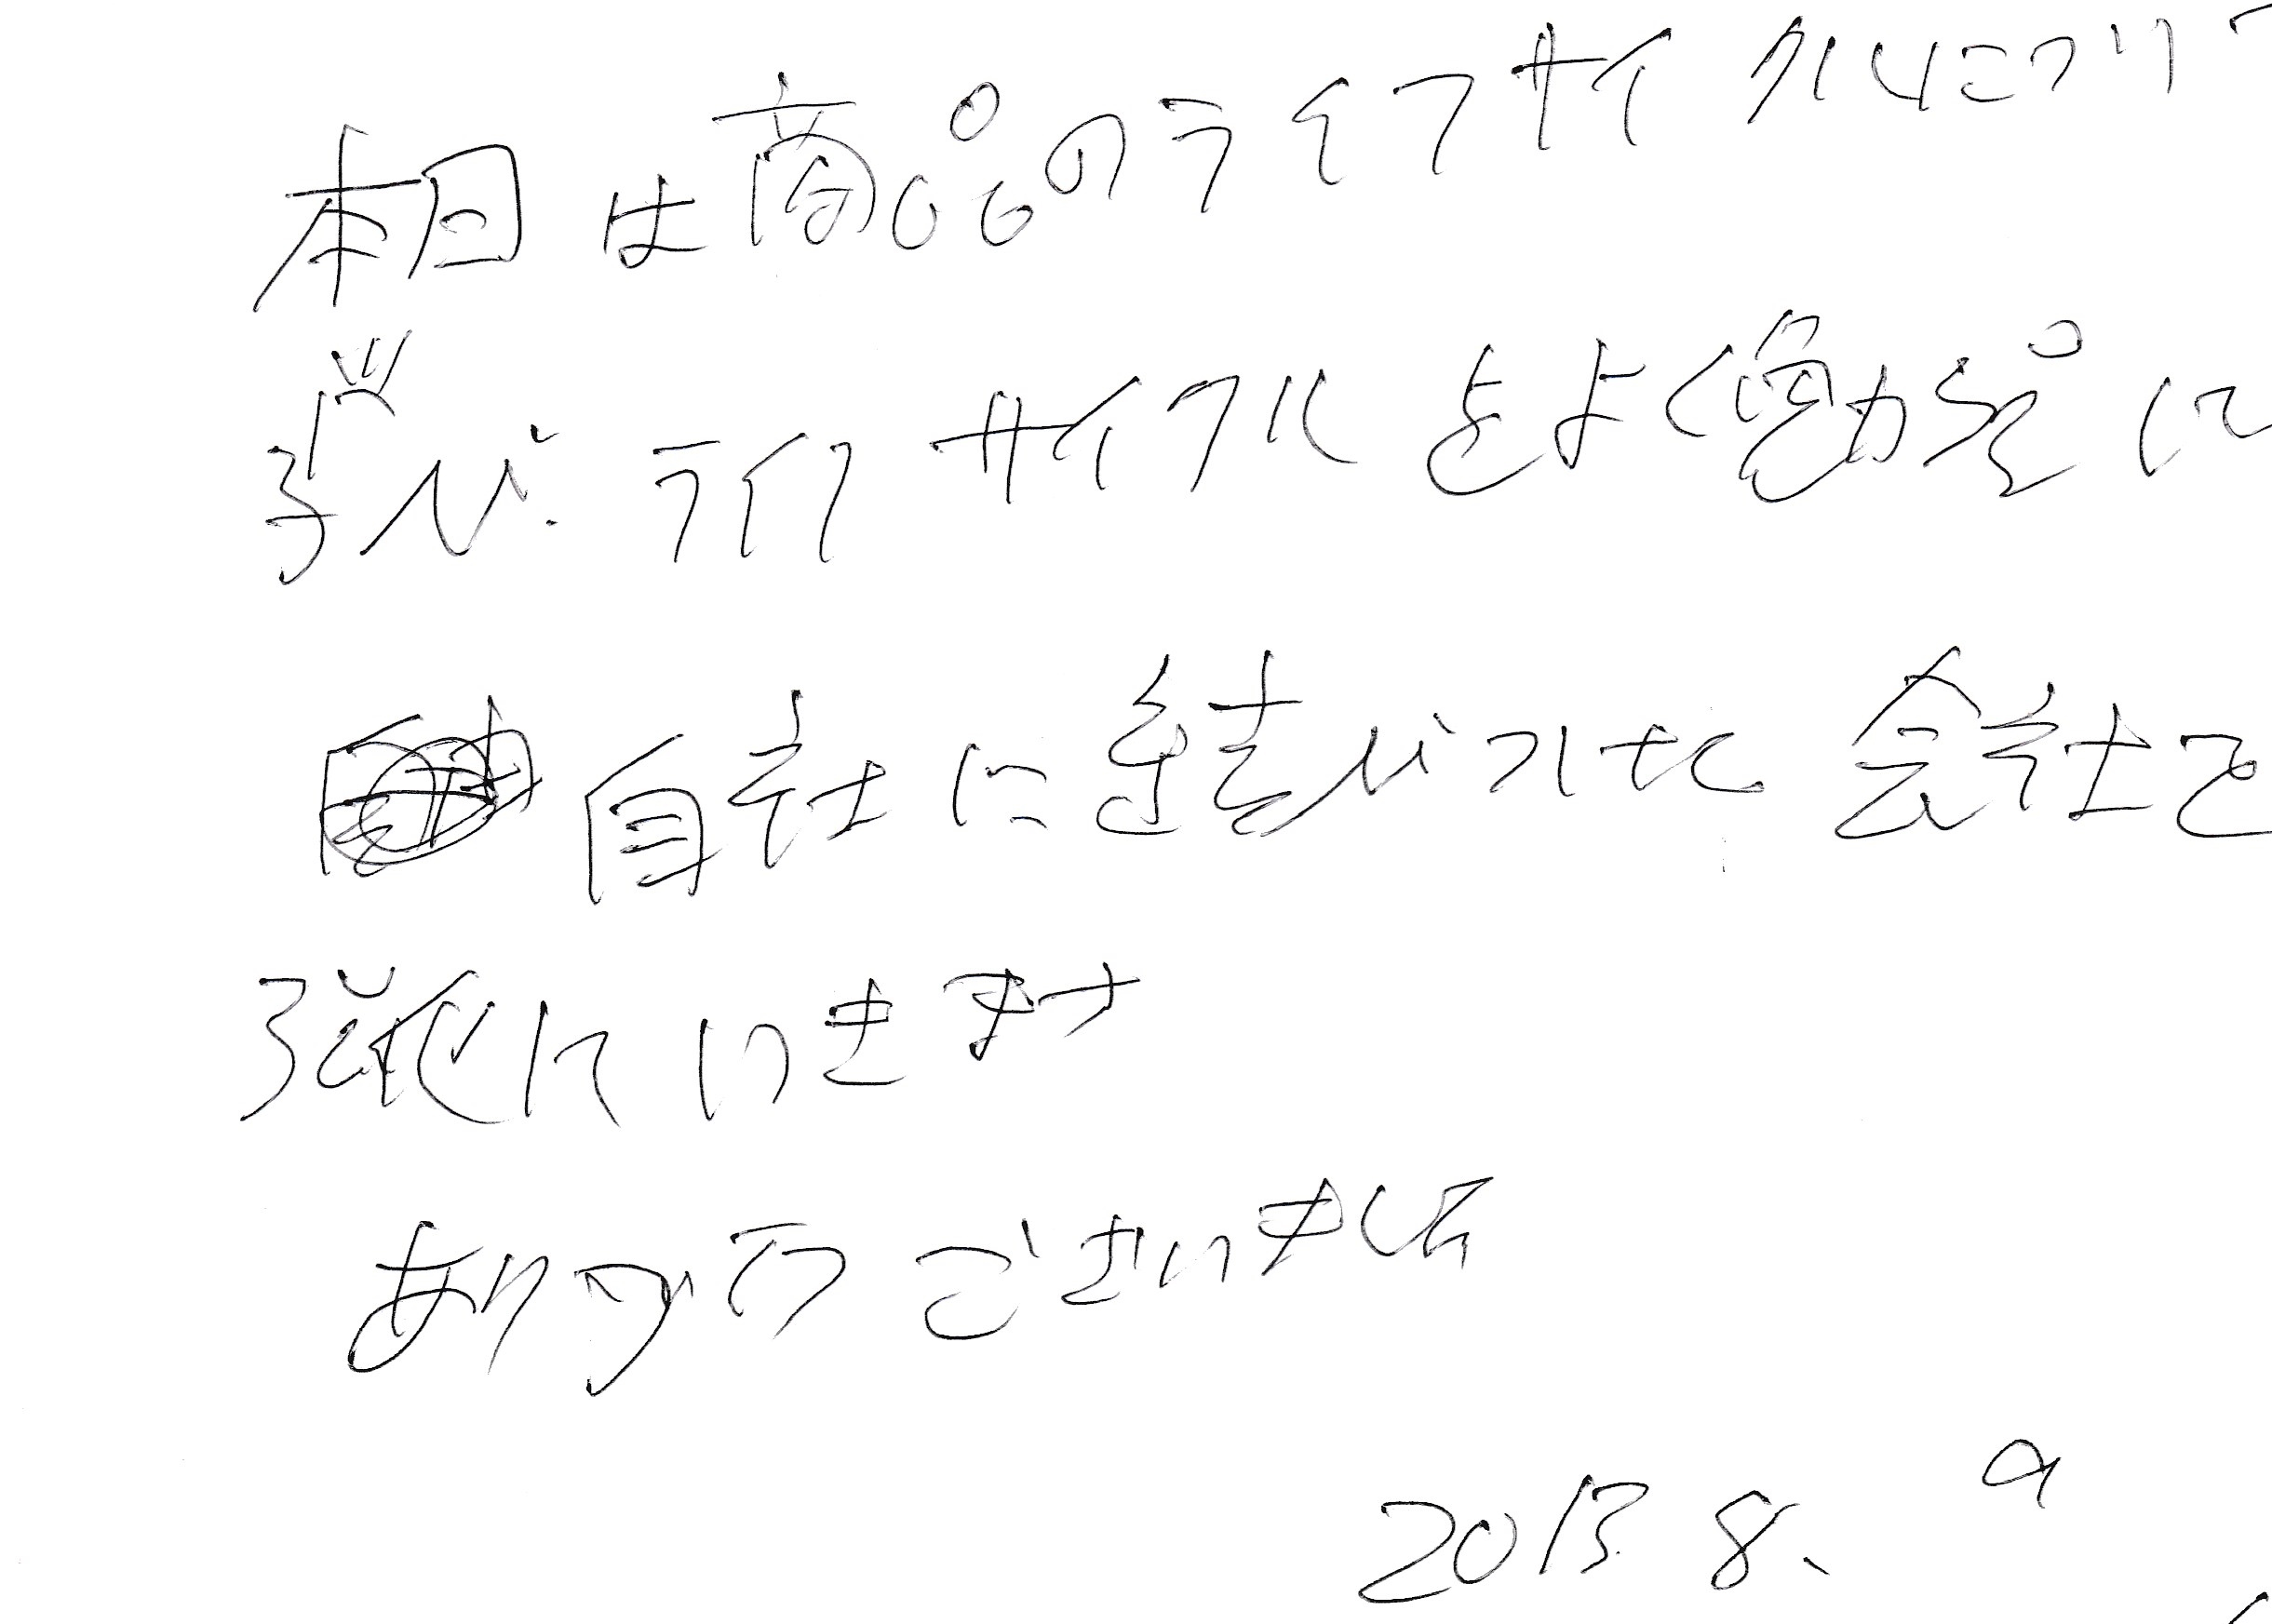 本日は商品のライフサイクルについて
学び、ライフサイクルをよく勉強に
自社に結びつけた会社を
強化していきます
ありがとうございました
2013 8. 9